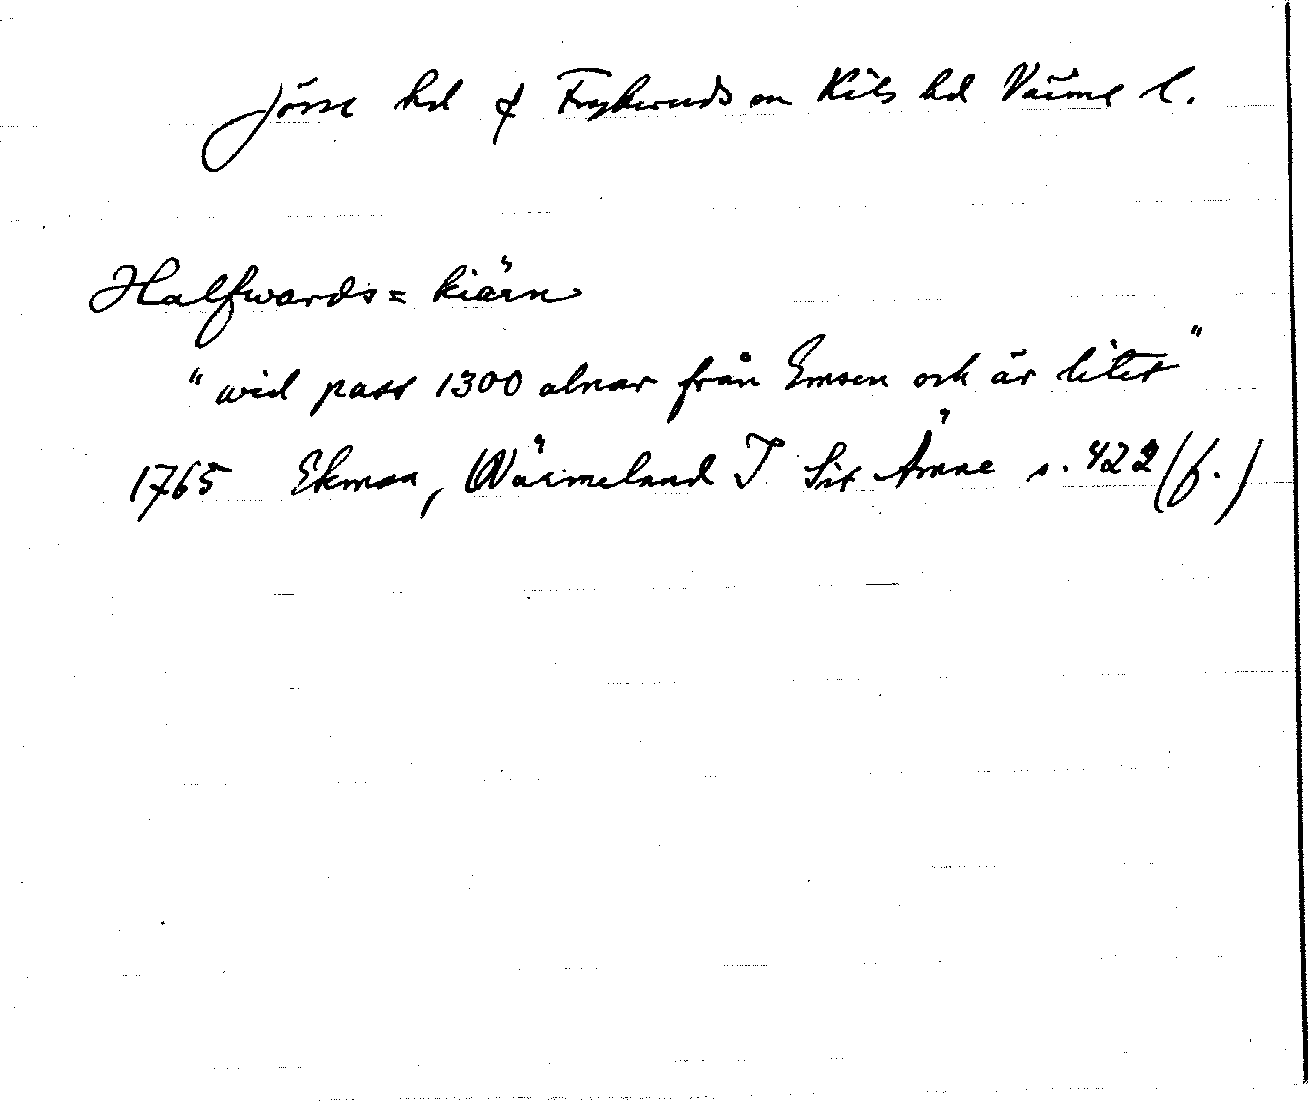 Jösse hd f Frykeruds sn Kils hd Värml l.
Halfwards= kiärn
"wid pass 1300 alnar från Emsen och är litet"
1765 Ekman, Wärmeland I six Ämne s. 422 (f.)